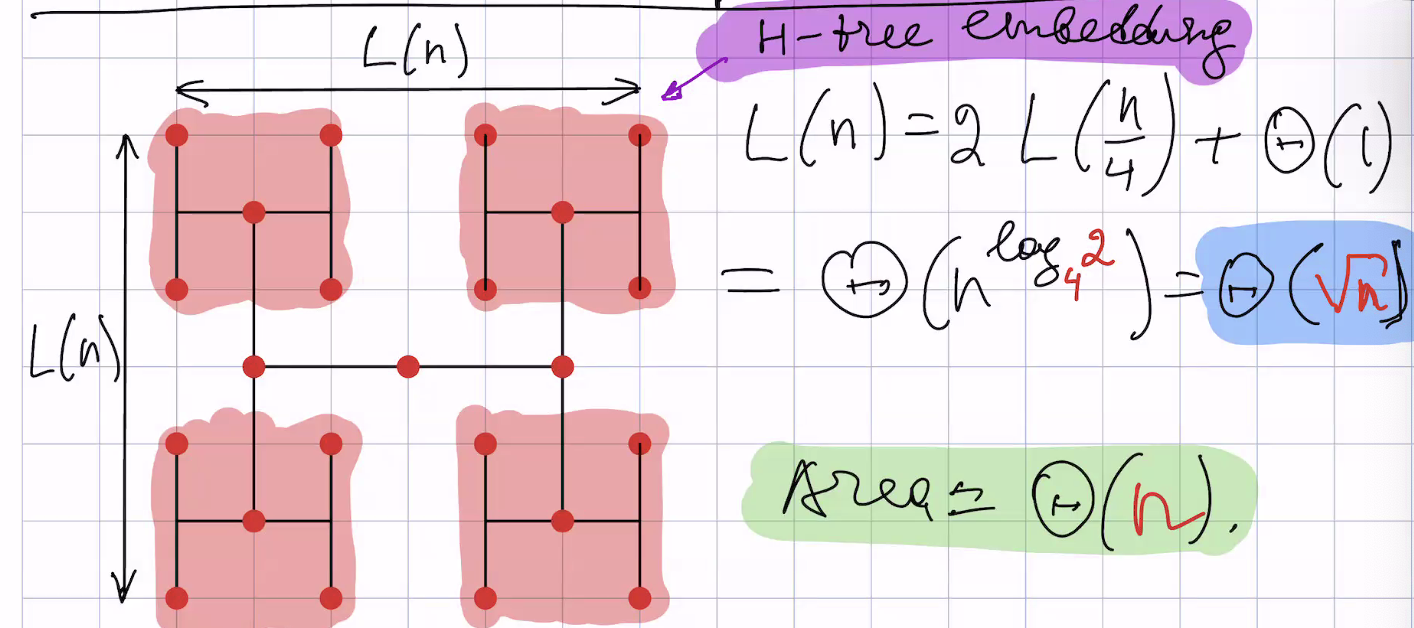 H-tree embedding
L(n)
L(n) = 2 L(n/4) + Θ(1)
= Θ(n^log_4 2) = Θ(√n)
L(n)
Area = Θ(n).